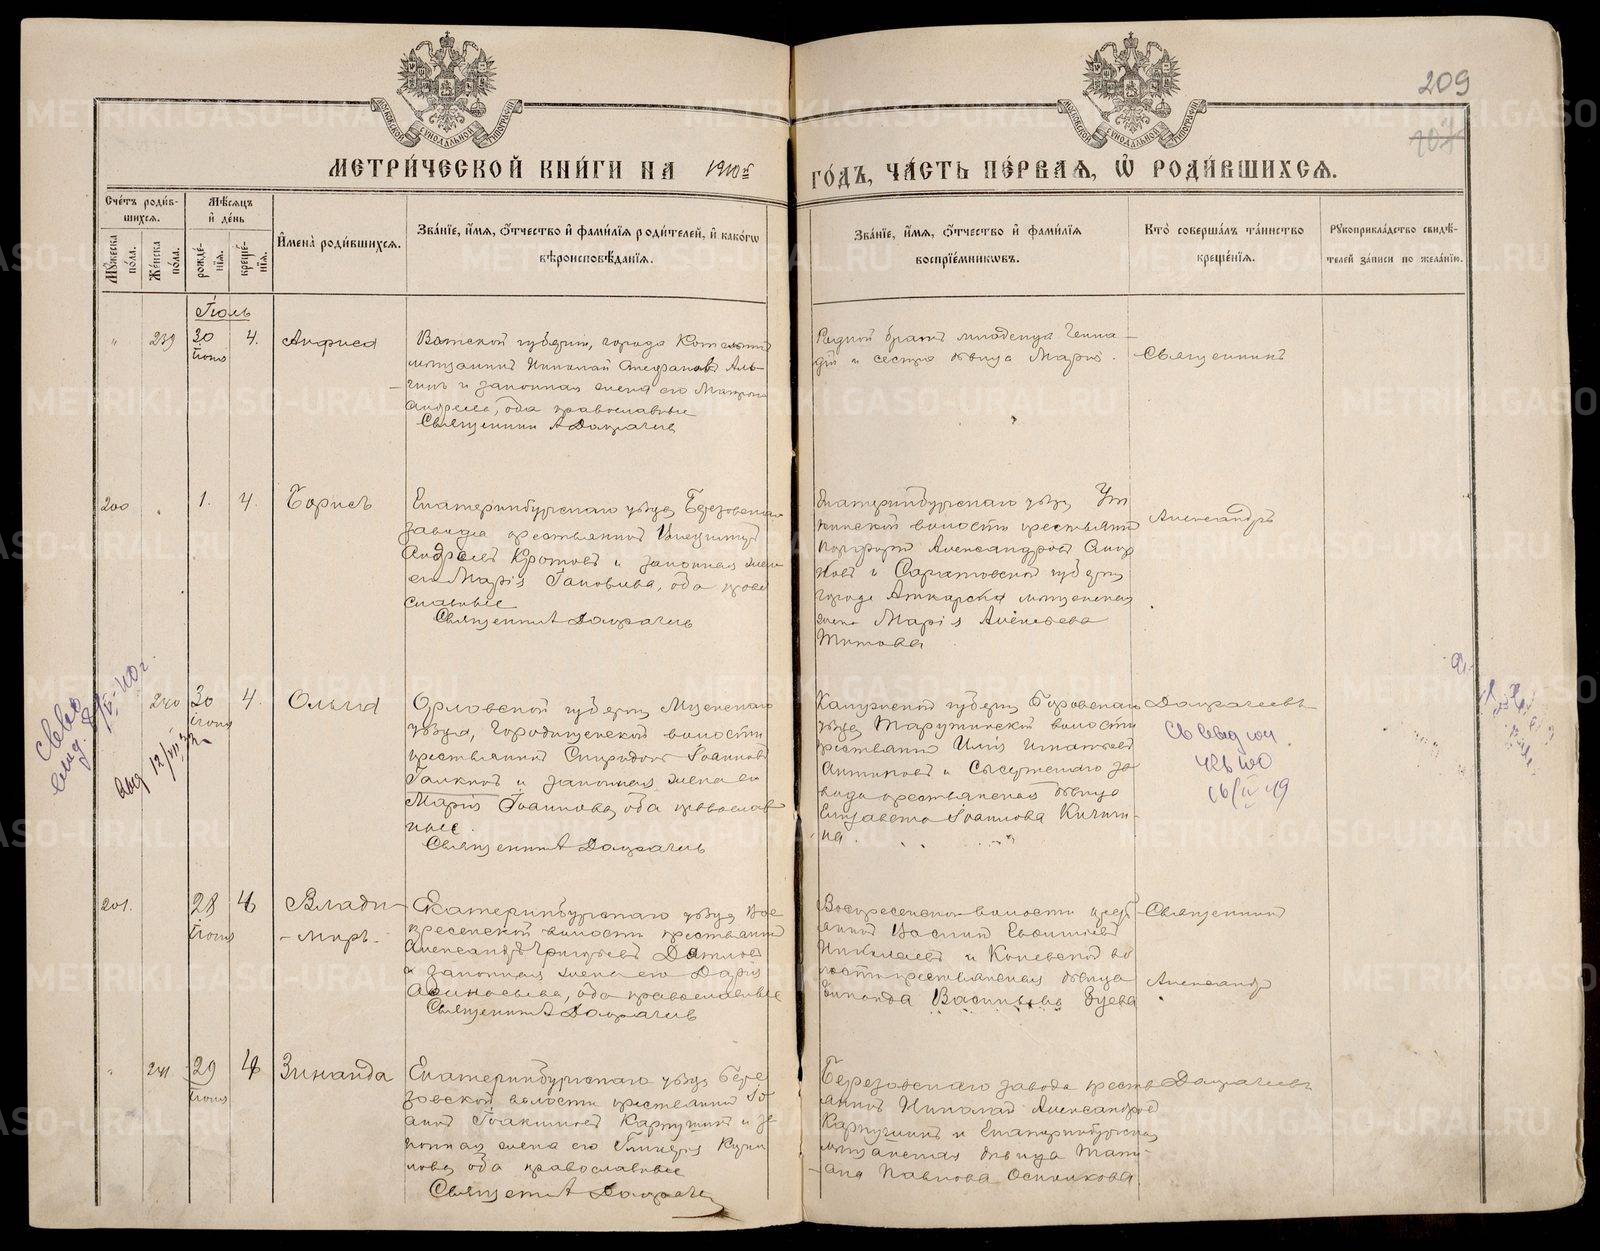 209
МОСКОВСКОЙ СѴНОДАЛЬНОЙ ТИПОГРАФІИ
МОСКОВСКОЙ СѴНОДАЛЬНОЙ ТИПОГРАФІИ
МЕТРИ́ЧЕСКОЙ КНИ́ГИ НА 1910й ГО́ДЪ, ЧА́СТЬ ПЕ́РВАѦ, Ѡ҆ РОДИ́ВШИХСѦ.
Сче́тъ роди́в-
шихсѧ.
Мꙋ́жеска по́ла.
Же́нска по́ла.
Мѣ́сѧцъ
и҆ де́нь
рожде́-
нїѧ.
креще́-
нїѧ.
И҆мена̀ роди́вшихсѧ.
Зва́нїе, и҆́мѧ, ѻ҆́тчество и҆ фами́лїѧ роди́телей, и҆ како́гѡ
вѣроисповѣ́данїѧ.
Зва́нїе, и҆́мѧ, ѻ҆́тчество и҆ фами́лїѧ
воспрїе́мникѡвъ.
Кто̀ соверша́лъ та́инство
креще́нїѧ.
Рꙋкоприкла́дство свидѣ́-
телей за́писи по жела́нїю.
Іюль
239 30 Іюня 4. Анфиса
Вятской губерніи, города Котельнич
мѣщанинъ Николай Стефановъ Аль-
и законная жена его Матрона
Андреева, оба православные
Священник А Дограчевъ
Родной братъ младенца Генна-
дій и сестра дѣвица Марія.
Священникъ
200 1. 4. Борисъ
Екатеринбургскаго уѣзда Березовскаго
завода крестьянинъ
Андреевъ Кротовъ и законная жена
его Марія Іаковлева, оба право-
славные
Священник А Дограчевъ
Екатеринбургскаго уѣзда Ут-
кинской волости крестьянинъ
Порфирій Александровъ
и Саратовской губерніи
города Аткарска мѣщанская
жена Марія Алексѣева
Титова
Александръ
240 30 Іюня 4. Ольга
Орловской губерніи Мценскаго
уѣзда, Городищенской волости
крестьянинъ Спиридонъ Іоанновъ
Галкинъ и законная жена его
Марія Іоаннова, оба православ-
ные.
Священник А Дограчевъ
Калужской губерніи Боровскаго
уѣзда Тарутинской волости
крестьянинъ Илія Игнатьевъ
Антиповъ и Сысертскаго за-
вода крестьянская дѣвица
Елизавета Іоаннова Кичиги-
на.
Дограчевъ
201. 28 Іюня 4 Влади-
-миръ.
Екатеринбургскаго уѣзда Вос-
кресенской волости крестьянинъ
Александръ Григорьевъ Даниловъ
и законная жена его Дарія
Афиногенова, оба православные
Священник А Дограчевъ
Воскресенской волости кресть-
янинъ Василій Евфиміевъ
Николаевъ и Коневской во-
лости крестьянская дѣвица
Зинаида Васильева Зуева
Священникъ
Александръ
241 29 Іюня 4 Зинаида
Екатеринбургскаго уѣзда Бере-
зовской волости крестьянинъ Іо-
аннъ Іоакимовъ Карпушинъ и за-
конная жена его Гликерія Кирил-
лова, оба православные
Священник А Дограчевъ
Березовскаго завода кресть-
янинъ Николай Александровъ
Карпушинъ и Екатеринбургская
мѣщанская дѣвица Тать-
яна Павлова Осинникова.
Дограчевъ